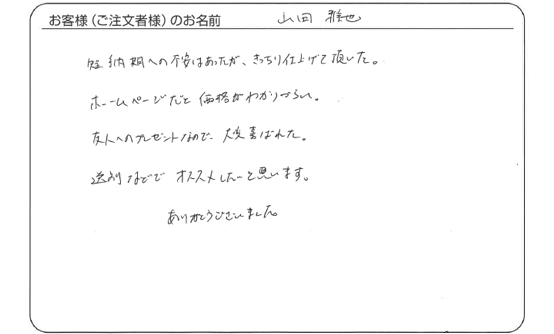 お客様(ご注文者様)のお名前 山田 雅也
短納期への不安はあったが、きっちり仕上げて頂いた。
ホームページだと価格がわかりづらい。
友人へのプレゼントなので、大変喜ばれた。
送別などでオススメしたいと思います。
ありがとうございました。